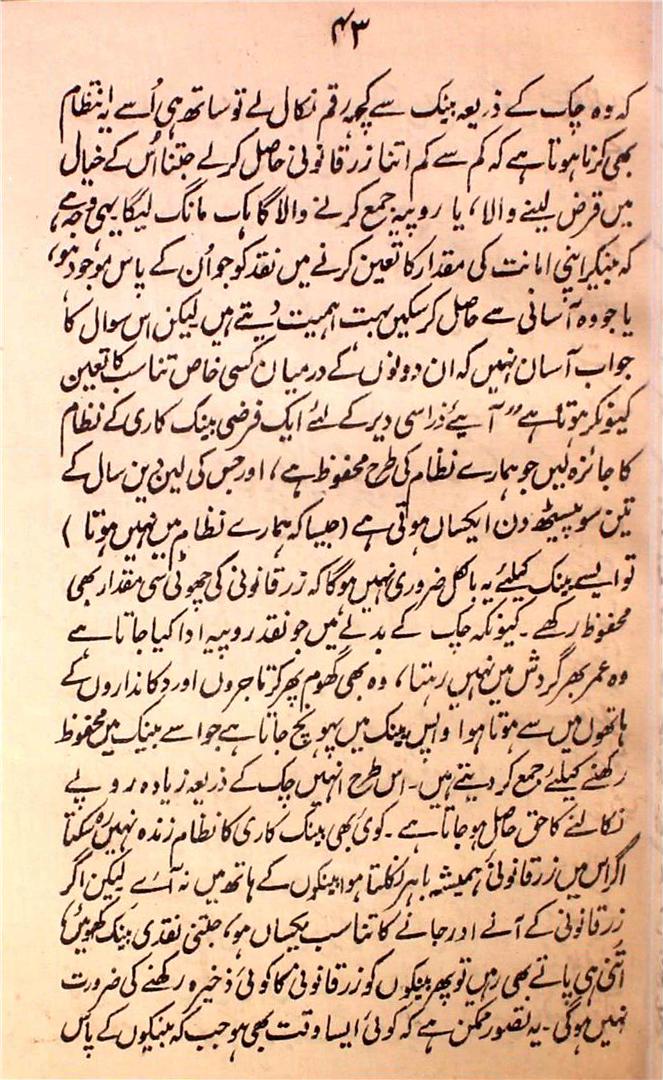 ۴۳
کہ وہ چک کے ذریعہ بینک سے کچھ رقم نکال لے تو ساتھ ہی اُسے یہ انتظام
بھی کرنا ہوتا ہے کہ کم سے کم اتنا زر قانونی حاصل کرلے جتنا اُس کے خیال
میں قرض لینے والا، یا روپیہ جمع کرنے والا گاہک مانگ لیگا یہی وجہ ہے،
کہ بنیکر اپنی امانت کی مقدار کا تعین کرنے میں نقد کو جو اُن کے پاس موجود ہو،
یا جو وہ آسانی سے حاصل کرسکیں بہت اہمیت دیتے ہیں لیکن اس سوال کا
جواب آسان نہیں کہ ان دونوں کے درمیان کسی خاص تناسب کا تعین
کیونکر ہوتا ہے” آیئے ذراسی دیر کے لئے ایک فرضی بینک کاری کے نظام
کا جائزہ لیں جو ہمارے نظام کی طرح محفوظ ہے، اور جس کی لین دین سال کے
تین سو پینسٹھ دن ایکساں ہوتی ہے (جیسا کہ ہمارے نظام میں نہیں ہوتا )
تو ایسے بینک کیلئے یہ بالکل ضروری نہیں ہوگا کہ زر قانونی کی چھوٹی سی مقدار بھی
محفوظ رکھے۔ کیونکہ چک کے بدلے میں جو نقد روپیہ ادا کیا جاتا ہے
وہ عمر بھر گردش میں نہیں رہتا، وہ بھی گھوم پھر کر تاجروں اور دکانداروں کے
ہاتھوں میں سے ہوتا ہوا واپس بینک میں پہونچ جاتا ہے جو اسے بینک میں محفوظ
رکھنے کیلئے جمع کر دیتے ہیں۔ اس طرح انہیں چک کے ذریعہ زیادہ روپے
نکالنے کا حق حاصل ہوجاتا ہے۔ کوئی بھی بینک کاری کا نظام زندہ نہیں رہ سکتا
اگر اس میں زر قانونی ہمیشہ باہر نکلتا ہوا بینکوں کے ہاتھ میں نہ آے لیکن اگر
زر قانونی کے آنے اور جانے کا تناسب یکساں ہو، جتنی نقدی بینک کھوئیں،
اتنی ہی پاتے بھی رہیں تو پھر بینکوں کو زر قانونی کا کوئی ذخیرہ رکھنے کی ضرورت
نہیں ہوگی۔ یہ تصور ممکن ہے کہ کوئی ایسا وقت بھی ہو جب کہ بنیکوں کے پاس